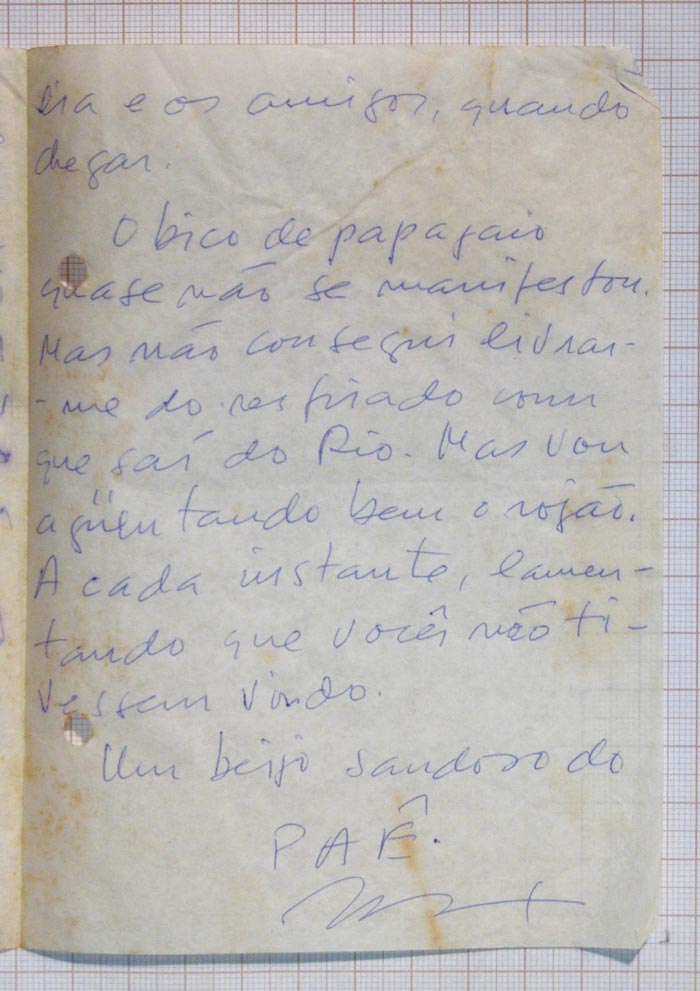 e os amigos, quando
chegar.
O bico de papagaio
quase não se manifestou.
Mas não consegui livrar-
-me do resfriado com
que saí do Rio. Mas vou
agüentando bem o rojão.
A cada instante, lamen-
tando que vocês não ti-
vessem vindo.
Um beijo saudoso do
PAÊ.